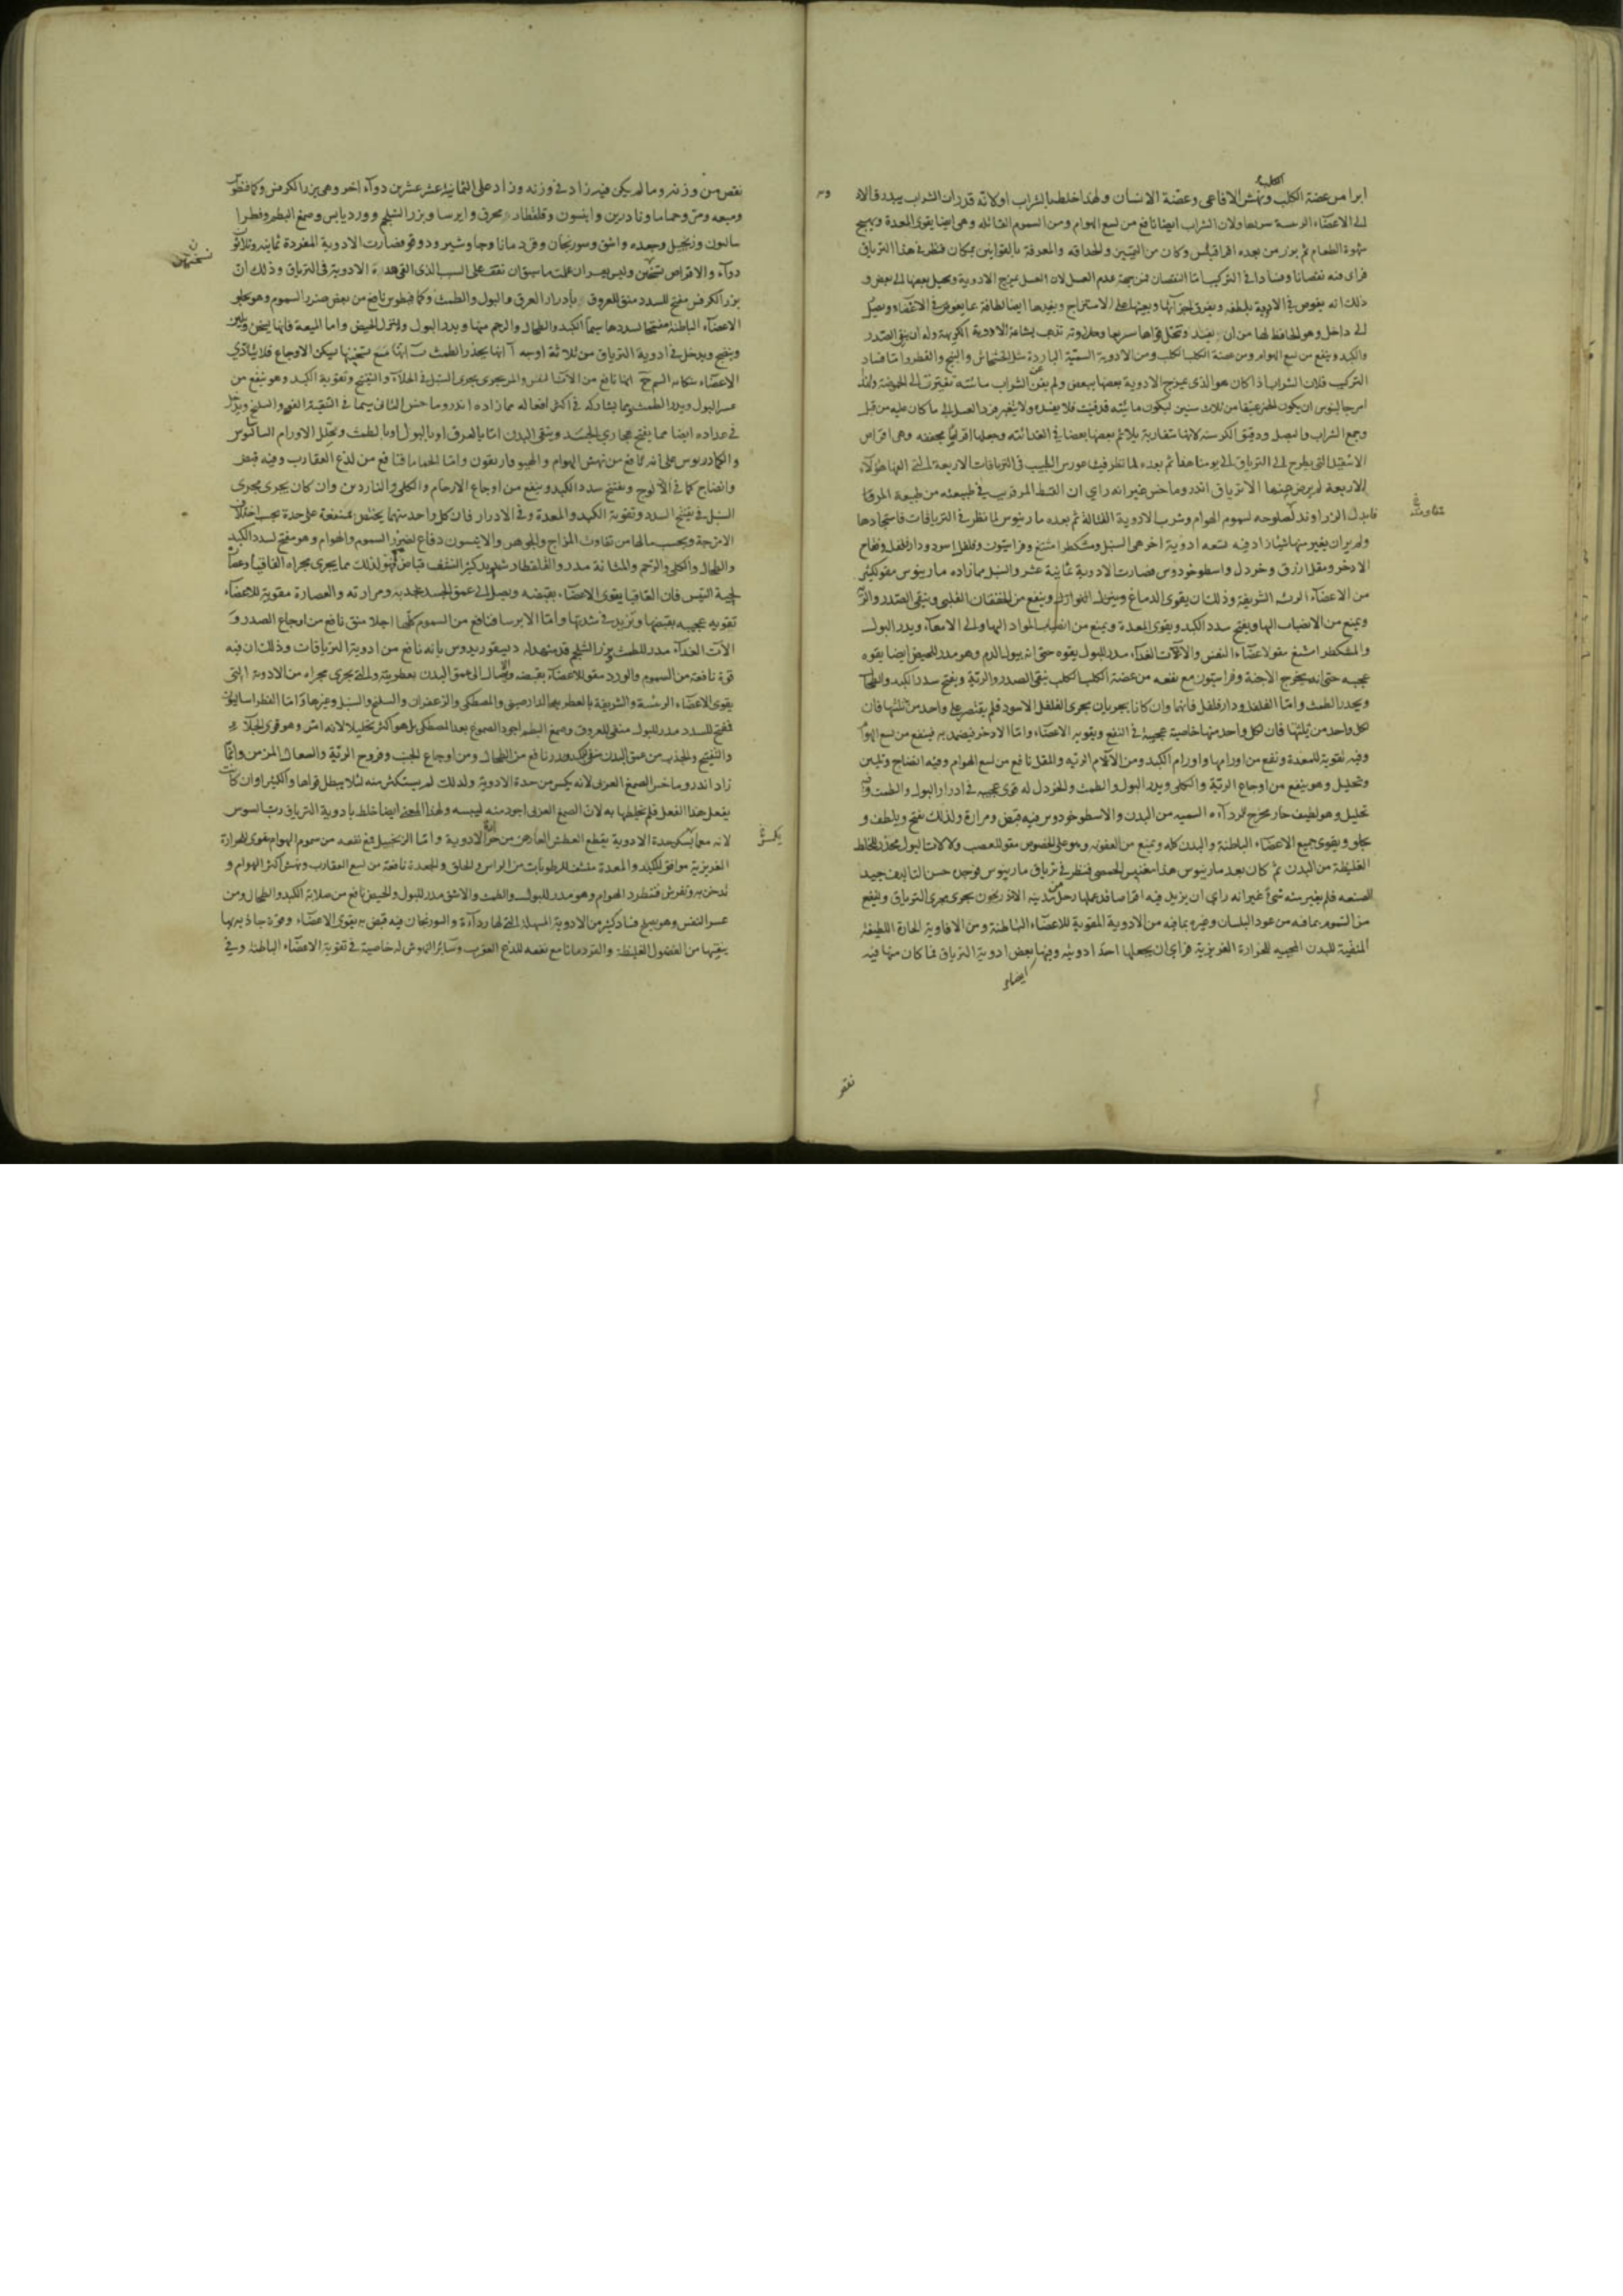 ابرا من عضة الكلب ونهش الافاعى وعضة الانسان ولهذا خلطه بالشراب اولانه قد ران الشراب يبدرقالاد
الى الاعضاء الرئيسة سريعا ولان الشراب ايضا نافع من لسع الهوام ومن السموم القتاله وهى ايضا يقوى المعدة ويهيج
شهوة الطعام ثم برز من بعده افراقليس وكان من التميز والحذاقه والمعرفة بالقوانين بمكان فنظر فى هذا الترياق
فراى فيه نقصانا وفسادا فى التركيب امّا النقصان فمن جهة عدم العسل لان العسل يمزج الادوية ويحيل بعضها الى بعض و
ذلك انه يغوص فى الادوية بلطفه ويفرق اجزآئها ويعينها على الامتزاج ويفيدها ايضا لطافة بها يغوص فى الاعضاء ويصل
الى داخل وهو الحافظ لها من ان يفسد وتحلل قواها سريعا وحلاوته تذهب بشاعة الادوية الكريهة وله ان ينقى الصّدر
والكبد وينفع من لسع الهوام ومن عضة الكلب الكلب ومن الادوية السمّية الباردة مثل الخشخاش والبنج والفطر وامّا فساد
التركيب فلان الشراب اذا كان هو الذى يمزج الادوية بعضها ببعض ولم يفن الشراب مائيته تغيّرت الى الحموضة ولذا
امر جالينوس ان يكون الخمر عتيقا من ثلاث سنين ليكون مائيّته قد فنيت فلا يفسده ولا يتغير فرد العسل الى ما كان عليه من قبل
وجمع الشراب والبصل ودقيق الكرسنه لانها متقاربة يلائم بعضها بعضا فى الغذائية وجعلها اقراصًا مجففه وهى اقراص
الاشقيل التى يطرح الى الترياق الى يومنا هذا ثم بعده لما نظر فيثاغورس الطبيب فى الترياقات الاربعة التى الفها هؤلآء
الاربعة لم يرض منها الا ترياق اندروماخس غير انه راى ان القسط المر قريب فى طبيعته من طبيعة المر فا
فابدل الزراوند لصلوحه لسموم الهوام وشرب الادوية القتالة ثم بعده مارينوس لما نظر فى الترياقات فاستجادها
ولم يران يغير منها شيئا زاد فيه تسعه ادوية اخر هى السنبل ومشكطرامشيغ وفراسيون وفلفل اسود ودارفلفل وفقاح
الادخر ومقل ازرق وخردل واسطوخودوس فصارت الادوية ثمانية عشر والسنبل مما زاده مارينوس مقو لكثير
من الاعضآء الرئيسة الشريفة وذلك ان يقوى الدماغ وينزل النوازل وينفع من الخفقان القلبى وينقى الصّدر والريّه
ويمنع من الانصباب اليها ويفتح سدد الكبد ويقوى المعدة ويمنع من انصباب المواد اليها والى الامعآء ويدر البول
والمشكطرامشيغ مقو لاعضآء النفس والآت الغذاء مدر للبول بقوه حتى انه يبول الدم وهو مدر للحيض ايضا بقوه
عجيبه حتى انه يخرج الاجنة وفراسيون مع نفعه من عضة الكلب الكلب ينقى الصدر والريّة ويفتح سدد الكبد والطحال
ويحدر الطمث وامّا الفلفل ودارفلفل فانهما وان كانا يجريان مجرى الفلفل الاسود فلم يقتصر على واحد من ثلثها فان
لكل واحد من ثلثها فان لكل واحد منها خاصية عجيبة فى النفع وتقوية الاعضآء وامّا الادخر فيضمد به فينفع من لسع الهوام
وفيه تقوية للمعدة ونفع من اورامها واورام الكبد ومن الآلام الريه والمقل نافع من لسع الهوام وفيه انضاج وتليين
وتحليل وهو ينفع من اوجاع الريّة والكلى ويدر البول والطمث والخردل له قوى عجيبه فى ادرار البول والطمث وفيه
تحليل وهو لطيف حار مخرج للردآءه السميه من البدن والاسطوخودوس فيه قبض ومرارة ولذلك يفتح ويلطف و
يجلو ويقوى جميع الاعضآء الباطنة والبدن كله ويمنع من العفونه وهو على الخصوص مقو للعصب ولالات البول محذر للخلط
الغليظة من البدن ثم كان بعد مارينوس هذا مغنيس الحمصى فنظر فى ترياق مارينوس فوجده حسن التاليف جيد
الصنعه فلم يغير منه شئ غير انه راى ان يزيد فيه اقراصا قد عملها رجل من مدينه الاذريجون يجرى مجرى الترياق وينفع
من السموم بما فيه من عود البلسان وغيره بما فيه من الادوية المقوية للاعضآء الباطنة ومن الافاوية الحارة اللطيفة
المنقية للبدن المحييه للحرارة الغريزية فراى ان يجعلها احد ادويته وفيها بعض ادوية الترياق فما كان منها فيه
ايضا
نقص
نقص من وزنه وما لم يكن فيه زاد فى وزنه وزاد على الثمانية عشر عشرين دوآء اخر وهى بزر الكرفس وكمافيطوس
وميعه ومو وحماما وناردين وانيسون وقلقطار محرق وايرسا وبزر الشلجم وورد يابس وصمغ البطم وفطرا
ساليون وزنجبيل وجعده واشق وسورنجان وقردمانا وجاوشير ودوقو فصارت الادوية المفردة ثمانيه وثلاثون
دوآء والاقراص نسختين وليس يعسر ان علمت ما سبق ان تقف على السبب الذى الادوية فى الترياق وذلك ان
بزر الكرفس مفتح للسدد منق للعروق بادرار العرق والبول والطمث وكمافيطوس نافع من بعض ضرر السموم وهو يجلو
الاعضآء الباطنة مفتحا لسددها سيما الكبد والطحال والرحم منها ويدر البول وينزل الحيض واما الميعة فانها يسخن ويلين
وينضج ويدخل فى ادوية الترياق من ثلاثة اوجه آ انها يحذر الطمث ب انها مع تسخينها يسكن الاوجاع فلا يتاذى
الاعضآء بنكايه السم ج انها نافع من الآت النفس والمو يجرى مجرى السنبل فى الجلآء والتفتيح وتقوية الكبد وهو ينفع من
عسر البول ويدر الطمث وما يشاركه فى اكثر افعاله مما زاده اندروماخس الثانى سيما فى التنقية
فى عداده ايضا مما يفتح مجارى الجسد وينقى البدن امّا بالعرق او بالبول او بالطمث ويحلل الاورام
والكمادريوس على انه نافع من نهش الهوام والهيوفاريقون وامّا الحماما فنافع من لذع العقارب وفيه قبض
وانضاج كما فى الوج ويفتح سدد الكبد وينفع من اوجاع الارحام والكلى والناردين وان كان يجرى مجرى
السنبل فى تفتيح السدد وتقوية الكبد والمعدة وفى الادرار فان كل واحد منهما يختص بمنفعة على حدة بحسب اختلاف
الامزجة وبحسب مالها من تفاوت المزاج والجوهر والانيسون دفاع لضرر السموم والهوام وهو مفتح لسدد الكبد
والطحال والكلى والرحم والمثانة مدر والقلقطار شديد كثير التنشف قباض فهو لذلك مما يجرى مجراه القاقيا وعصارة
لحية التيس فان القاقيا يقوى الاعضآء بقبضه ويصل الى عمق الجسد بحديته ومرارته والعصارة مقوية للاعضآء
تقويه عجيبه بقبضها ويزيد فى شدتها وامّا الايرسا فنافع من السموم كلّها اجلا منق نافع من اوجاع الصدر و
الآت الغذآء مدر للطمث وبزر الشلجم قد شهد له ديسقوريدوس بانه نافع من ادوية الترياقات وذلك ان فيه
قوة نافعة من السموم والورد مقو للاعضآء بقبضه وايصال الى عمق البدن بعطريته والتى يجرى مجراه من الادوية التى
يقوى الاعضآء الرئيسة والشريفة بالعطر بها الدارصينى والمصطكى والزعفران والسليخ والسنبل وغيرها وامّا الفطراساليون
فمفتح للسدد مدر للبول منقى للعروق وصمغ البطم اجود الصموغ بعد المصطكى بل هو اكثر تحليلا لانه امرّ وهو قوى الجلآء
والتفتيح والجذب من عمق البدن منقى للكبد ومدر نافع من الطحال ومن اوجاع الجنب وقروح الريّة والسعال المزمن وانّما
زاد اندروماخس الصمغ العربى لانه يكسر من حدة الادوية ولذلك لم يستكثر منه لئلا يبطل قواها والكثيرا وان كانت
يفعل هذا الفعل فلم يخلطها به لان الصمغ العربى اجود منه ليبسه ولهذا المعنى ايضا خلط بادوية الترياق رب السوس
لانه مع انه يسكن حدة الادوية يقطع العطش العارض من حرارة الادوية وامّا الزنجبيل فمع نفعه من سموم الهوام مقوى للحرارة
الغريزية موافق للكبد والمعدة منشف للرطوبات من الراس والحلق والجعدة نافعة من لسع العقارب ونهش اكثر الهوام و
تدخن به وتفرش فتطرد الهوام وهو مدر للبول والطمث والاشق مدر للبول والحيض نافع من صلابة الكبد والطحال ومن
عسر النفس وهو يصلح فساد كثير من الادوية المسهلة التى لها ردآءة والسورنجان فيه قبض به يقوى الاعضآء وقوة جاذبة بها
ينقيها من الفضول الغليظة والقردمانا مع نفعه للدغ العقرب وسائر النهوش له خاصية فى تقوية الاعضآء الباطنة وفى